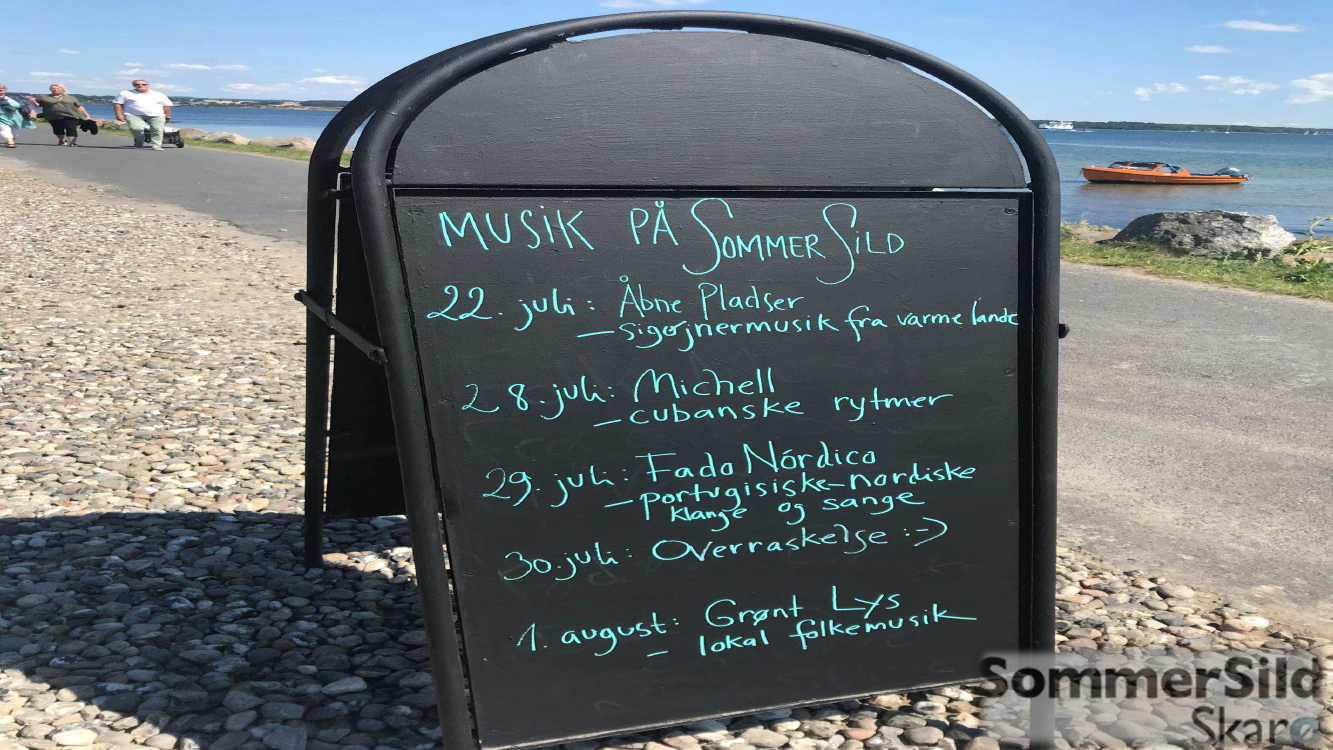 MUSIK PÅ SOMMERSILD
22. juli: Åbne Pladser
– sigøjnermusik fra varme lande
28. juli: Michell
– cubanske rytmer
29. juli: Fado Nórdico
– portugisiske-nordiske
klange og sange
30. juli: Overraskelse :-)
1. august: Grønt Lys
– lokal folkemusik
SommerSild
Skarø